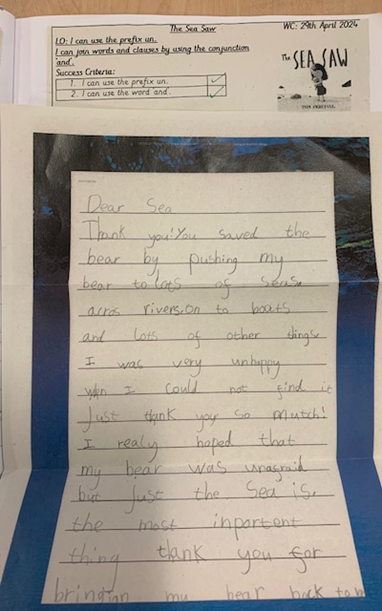 The Sea Saw
WC: 29th April 2024
LO: I can use the prefix un.
I can join words and clauses by using the conjunction
and'.
Success Criteria:
1. I can use the prefix un.
2. I can use the word and'.
The SEA SAW
TOM PERCIVAL
Dear Sea
Thank you! You saved the
bear by pushing my
bear to lots of seas,
acros rivers, on to boats
and lots of other things.
I was very unhappy
wen I could not find it
Just thank you so mutch!
I realy hoped that
my bear was unafraid
but just the Sea is.
the most inportent
thing thank you for
my bear back to